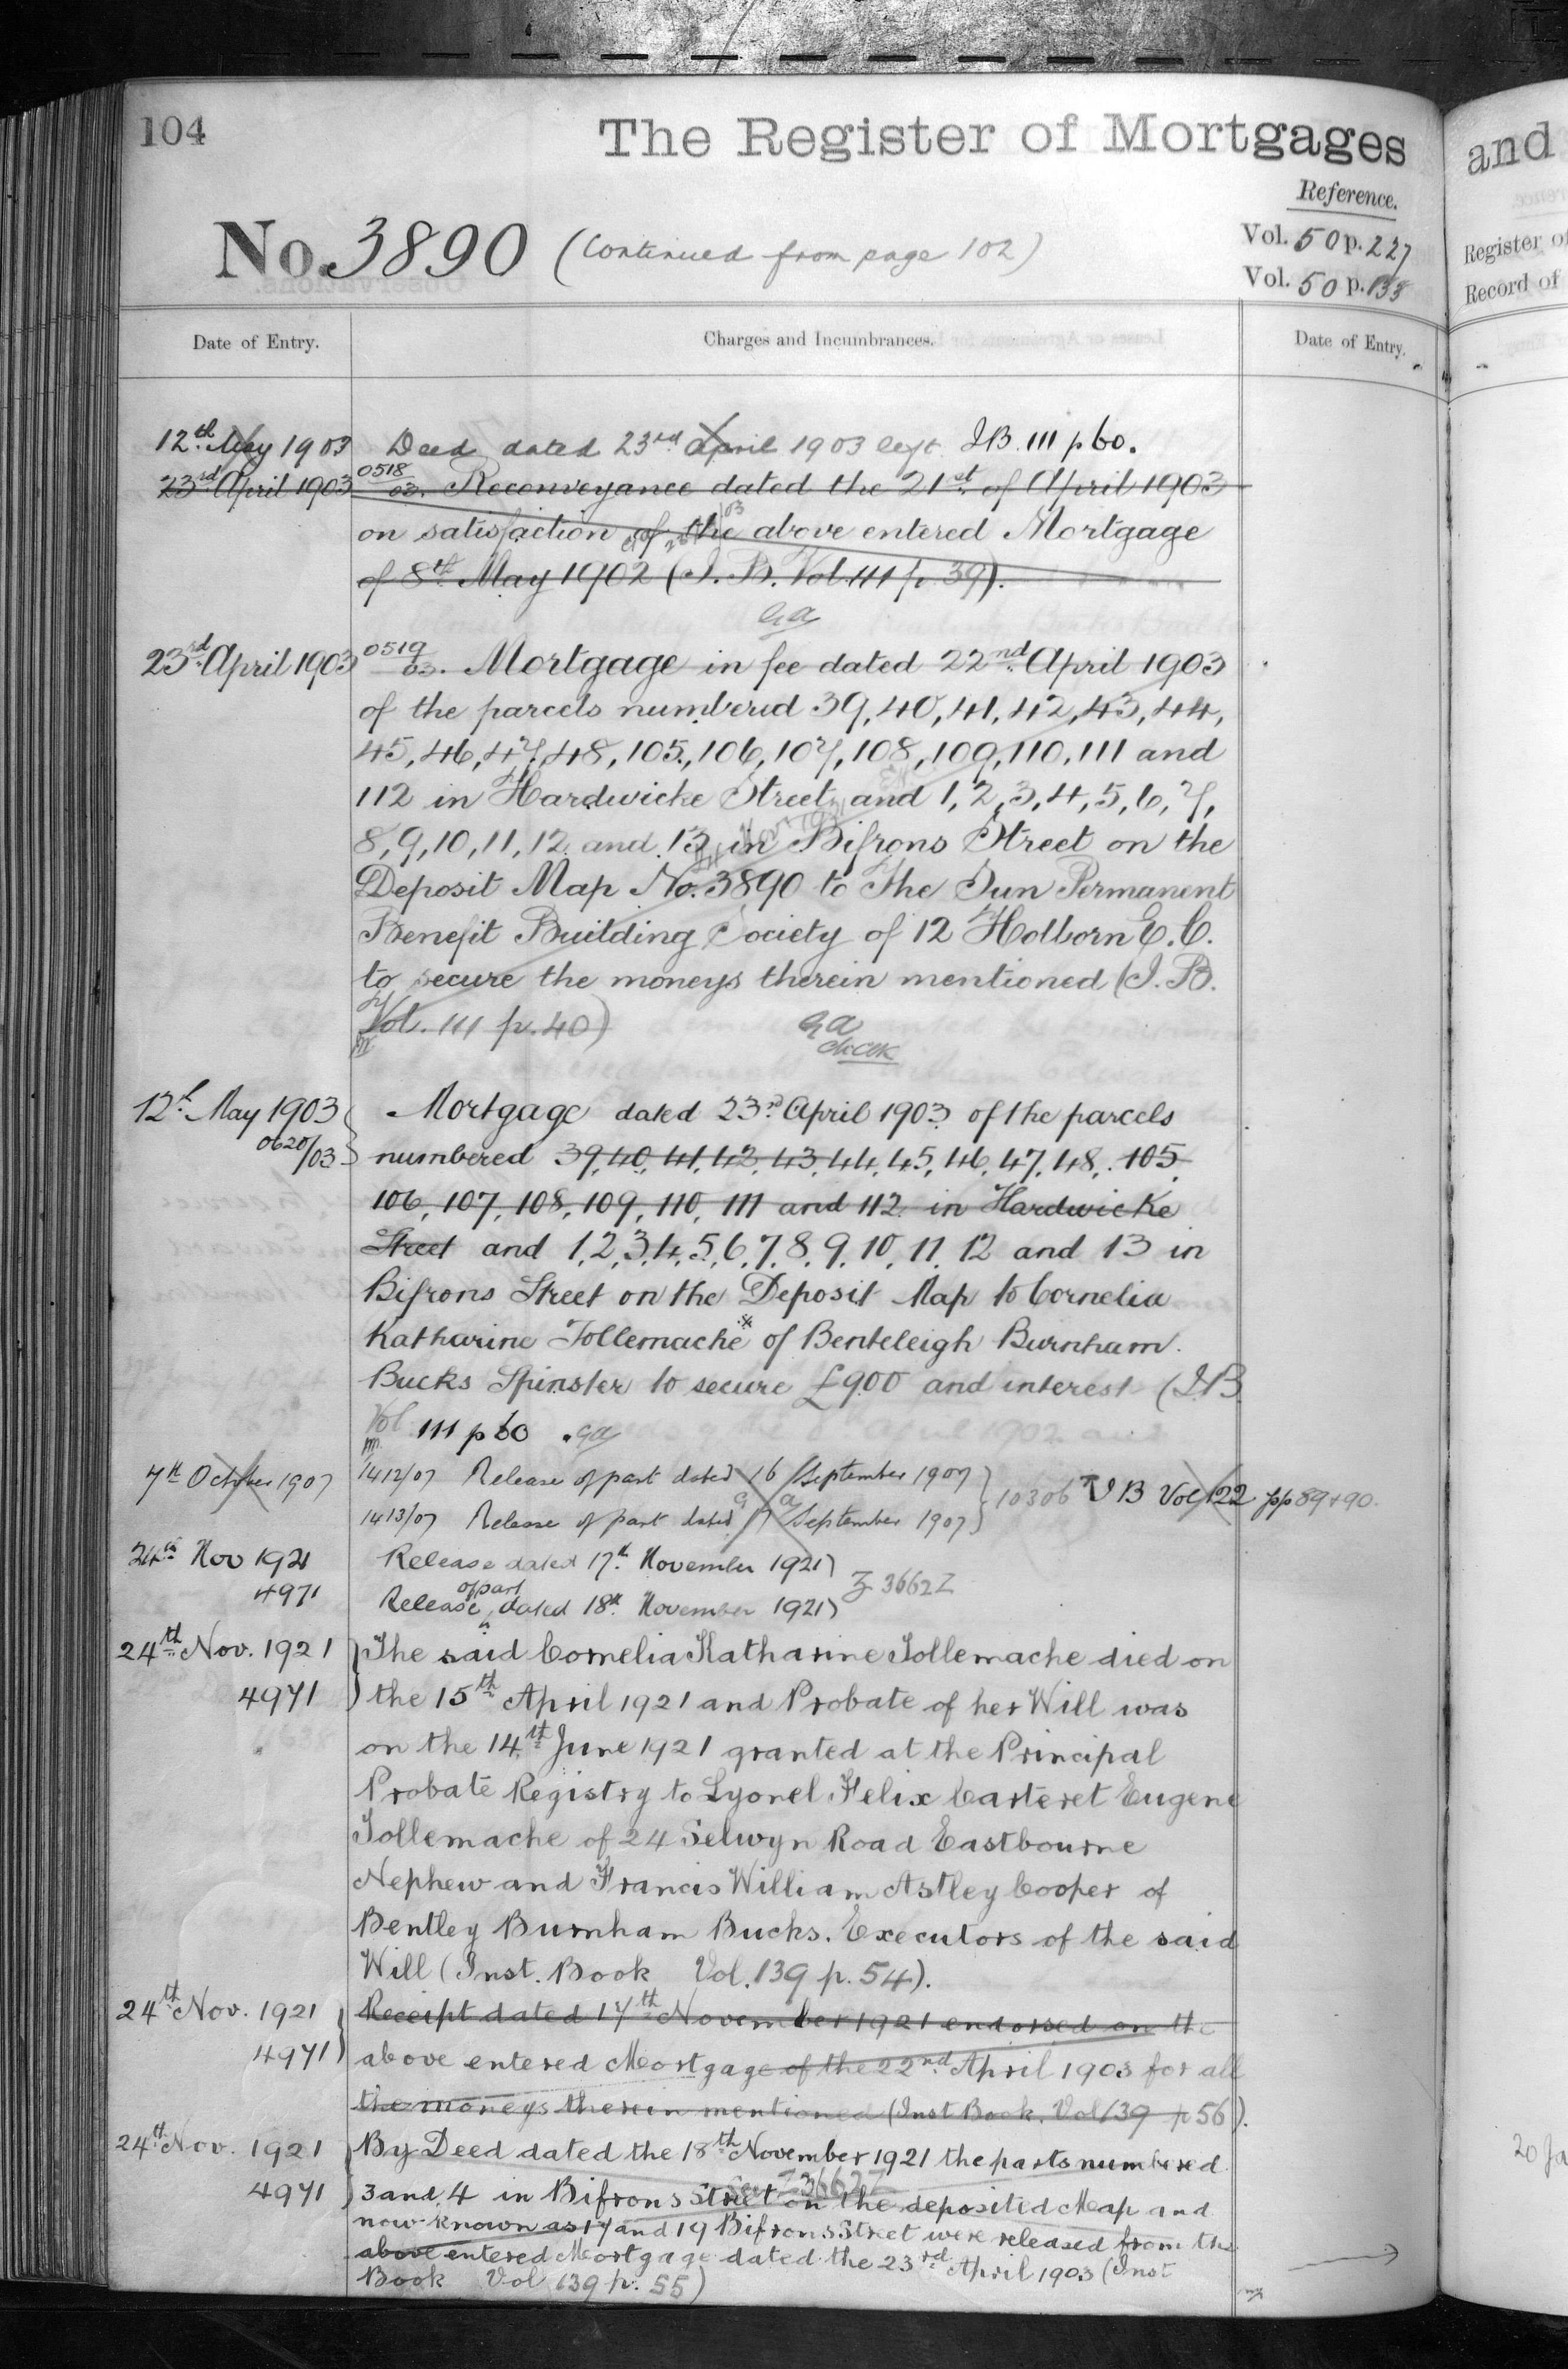 104
The Register of Mortgages
and
Reference.
Vol. 50 p. 227
Register of
No. 3890 (Continued from page 102)
Vol. 50 p. 133
Record of
Date of Entry.
Charges and Incumbrances.
Date of Entry.
12th May 1903 Deed dated 23rd April 1903 left I.B. 111 p 60.
23rd April 1903 0518/03. Reconveyance dated the 21st of April 1903
on satisfaction of the above entered Mortgage
of 8th May 1902 (I. B. Vol. 111 p. 39).
Ga
23rd April 1903 0519/03. Mortgage in fee dated 22nd April 1903
of the parcels numbered 39, 40, 41, 42, 43, 44,
45, 46, 47, 48, 105, 106, 107, 108, 109, 110, 111 and
112 in Hardwicke Street and 1, 2, 3, 4, 5, 6, 7,
8, 9, 10, 11, 12 and 13 in Bifrons Street on the
Deposit Map No. 3890 to The Sun Permanent
Benefit Building Society of 12 Holborn E. C.
to secure the moneys therein mentioned (I. B.
Vol. 111 p. 40)
Ga
12th May 1903 Mortgage dated 23rd April 1903 of the parcels
0620/03 numbered 39, 40, 41, 42, 43, 44, 45, 46, 47, 48, 105
106, 107, 108, 109, 110, 111 and 112 in Hardwicke
Street and 1, 2, 3, 4, 5, 6, 7, 8, 9, 10, 11, 12 and 13 in
Bifrons Street on the Deposit Map to Cornelia
Katharine Tollemache of Benteleigh Burnham
Bucks Spinster to secure £900 and interest (I.B
Vol 111 p 60 Ga
7th October 1907 1412/07 Release of part dated 16 September 1907
10306 I B Vol 122 pp 89 + 90.
1413/07 Release of part dated 17 September 1907
24th Nov 1921 Release dated 17th November 1921
4971 Release of part dated 18th November 1921 Z 3662Z
24th Nov. 1921 The said Cornelia Katharine Tollemache died on
4971 the 15th April 1921 and Probate of her Will was
on the 14th June 1921 granted at the Principal
Probate Registry to Lyonel Felix Carteret Eugene
Tollemache of 24 Selwyn Road Eastbourne
Nephew and Francis William Astley Cooper of
Bentley Burnham Bucks. Executors of the said
Will (Inst. Book Vol. 139 p. 54).
24th Nov. 1921 Receipt dated 17th November 1921 endorsed on the
4971 above entered Mortgage of the 22nd April 1903 for all
the moneys therein mentioned (Inst Book. Vol 139 p 56).
24th Nov. 1921 By Deed dated the 18th November 1921 the parts numbered
4971 3 and 4 in Bifrons Street on the deposited Map and
now known as 17 and 19 Bifrons Street were released from the
above entered Mortgage dated the 23rd April 1903 (Inst
Book Vol 139 p. 55)
20 Ja